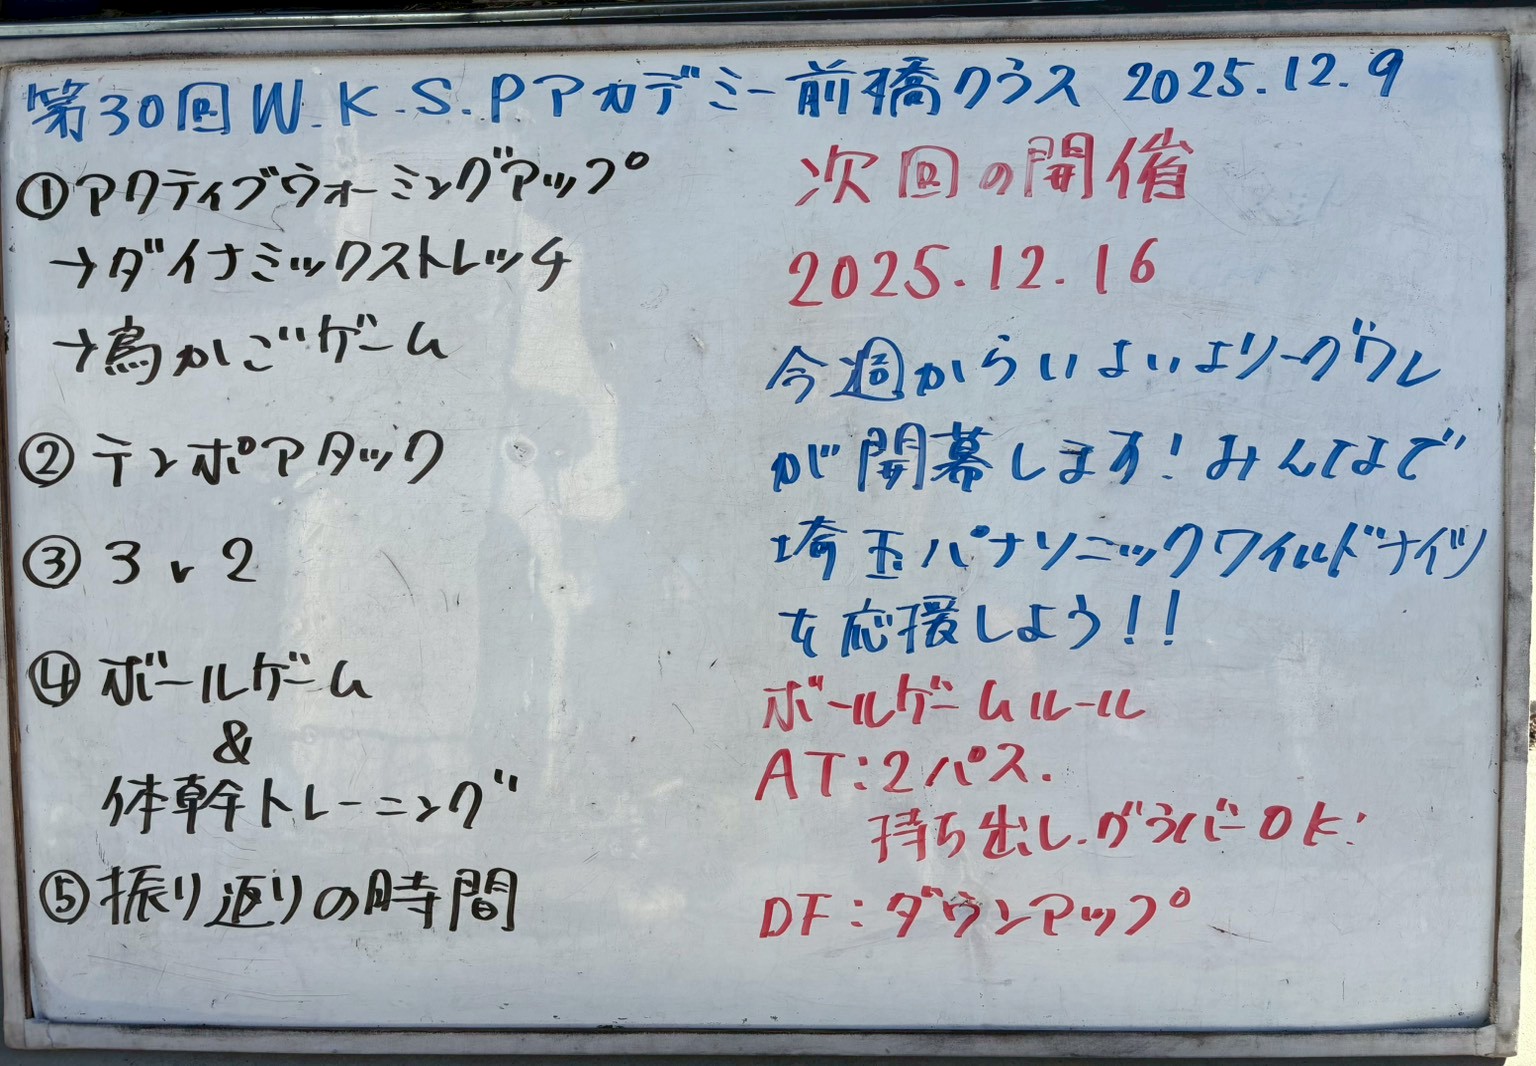 第30回W.K.S.Pアカデミー前橋クラス 2025.12.9
①アクティブウォーミングアップ
→ダイナミックストレッチ
→鳥かごゲーム
②テンポアタック
③3v2
④ボールゲーム
&
体幹トレーニング
⑤振り返りの時間
次回の開催
2025.12.16
今週からいよいよリーグワン
が開幕します!みんなで
埼玉パナソニックワイルドナイツ
を応援しよう!!
ボールゲームルール
AT:2パス.
持ち出し.グラバーOK!
DF:ダウンアップ